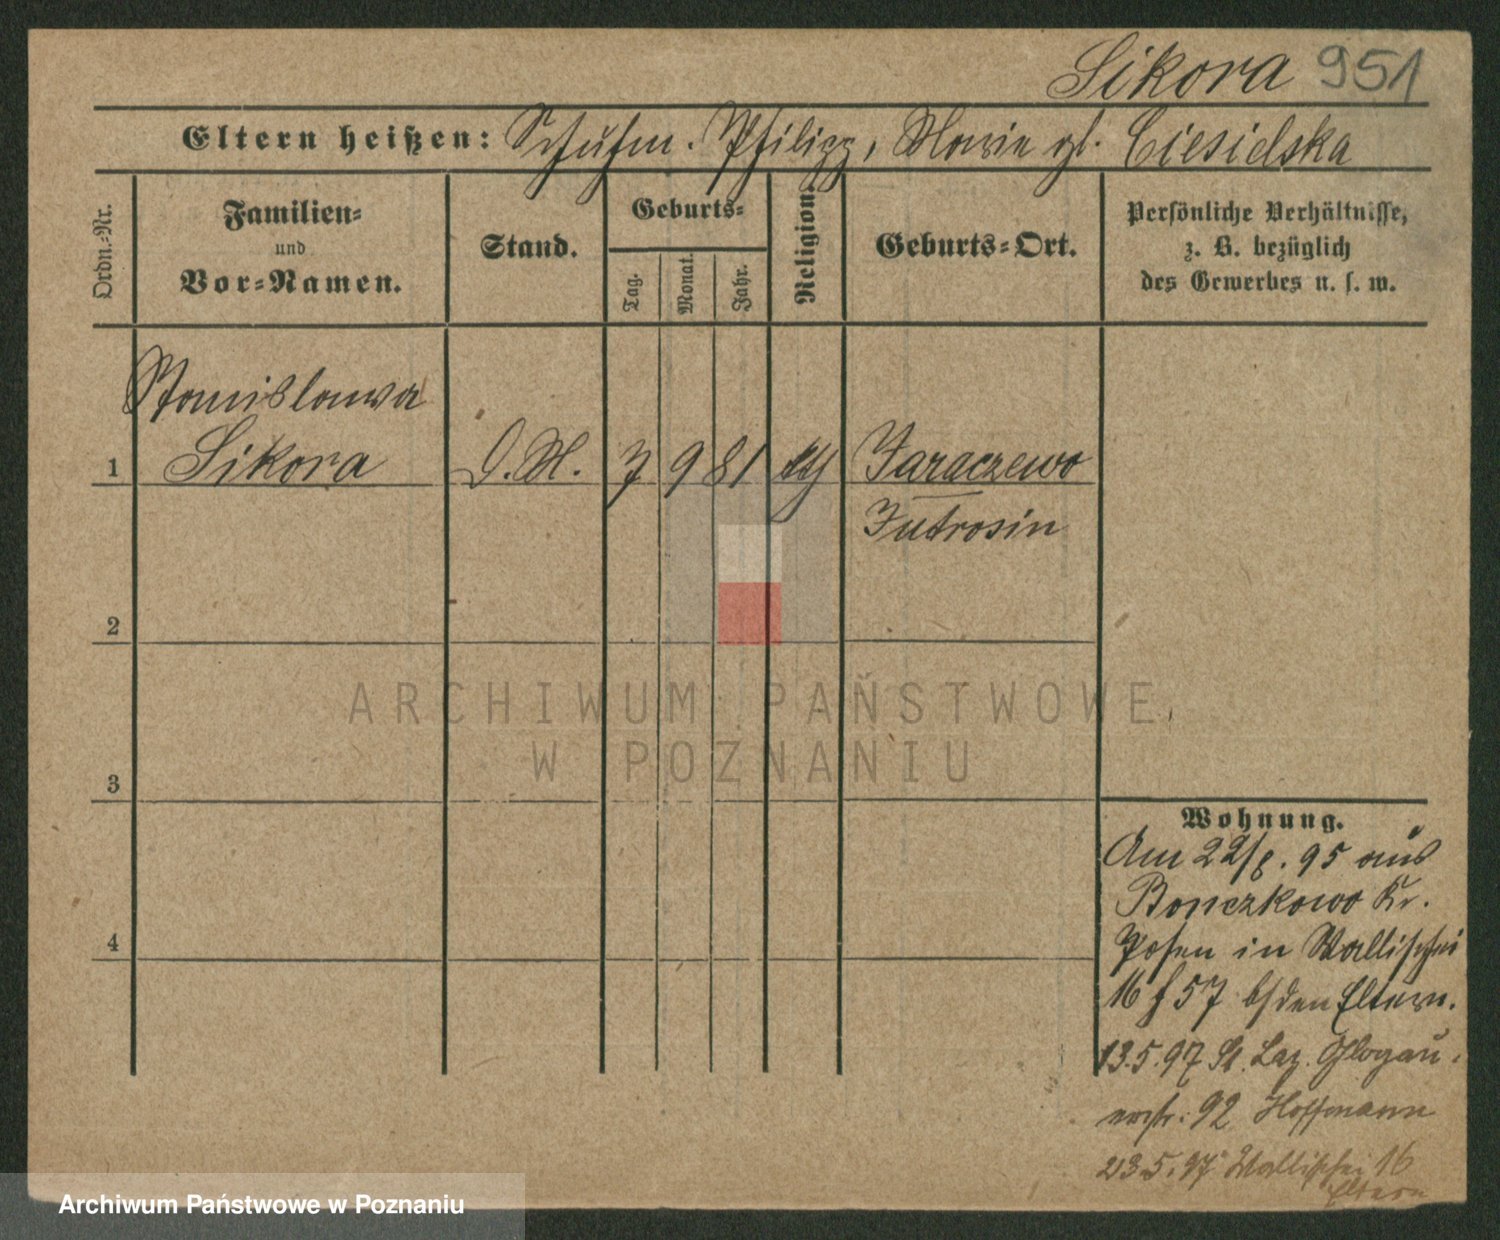 Sikora 951
Eltern heißen: Schuhm. Philipp, Marie gb. Ciesielska
Ordn.-Nr.
Familien-
und
Vor-Namen.
Stand.
Geburts-
Tag.
Monat.
Jahr.
Religion.
Geburts-Ort.
Persönliche Verhältnisse,
z. B. bezüglich
des Gewerbes u. s. w.
Stanislawa
1 Sikora D.M. 7 9 81 Jaraczewo
Jutrosin
2
3
4
ARCHIWUM PAŃSTWOWE
W POZNANIU
Wohnung.
Am 22/8. 95 aus
Bonczkowo Kr.
Posen in Wallischei
16 f 57 b/den Eltern.
13.5.97 St. Laz. Glogau-
erstr. 92 Hoffmann
23.5.97 Wallischei 16
Eltern
Archiwum Państwowe w Poznaniu